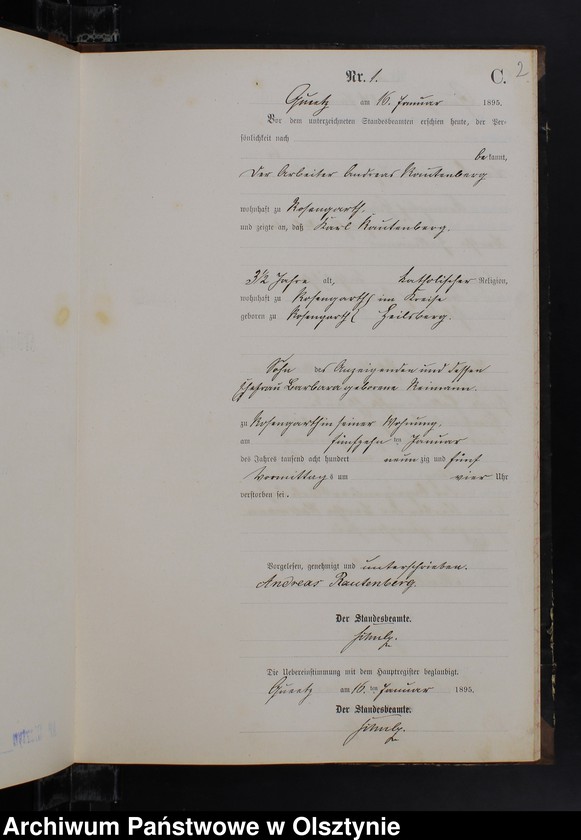 Nr. 1.
C.
2
Queetz am 16. Januar 1895.
Vor dem unterzeichneten Standesbeamten erschien heute, der Per-
sönlichkeit nach
bekannt,
Der Arbeiter Andreas Rautenberg
wohnhaft zu Rosengarth.
und zeigte an, daß Karl Rautenberg.
3½ Jahre alt, katholischer Religion,
wohnhaft zu Rosengarth im Kreise
geboren zu Rosengarth Heilsberg.
Sohn des Anzeigenden und dessen
Ehefrau Barbara geborene Reimann.
zu Rosengarth in seiner Wohnung,
am fünfzehn ten Januar
des Jahres tausend acht hundert neun zig und fünf
Vormittags um vier Uhr
verstorben sei.
Vorgelesen, genehmigt und unterschrieben.
Andreas Rautenberg.
Der Standesbeamte.
Schulz.
Die Uebereinstimmung mit dem Hauptregister beglaubigt.
Queetz am 16. ten Januar 1895.
Der Standesbeamte.
Schulz.
Archiwum Państwowe w Olsztynie